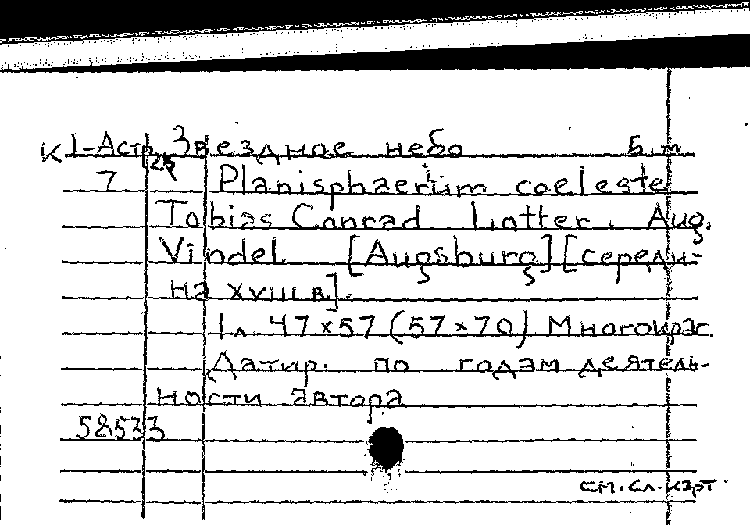 К 1-Астр. Звездное небо Б.м.
7 25 Planisphaerium coeleste
Tobias Conrad Lotter. Aug.
Vindel. [Augsburg][середи-
на XVIII в.].
1 л. 47×57 (57×70) Многокрас.
Датир. по годам деятель-
ности автора
58533
см. сл. карт.